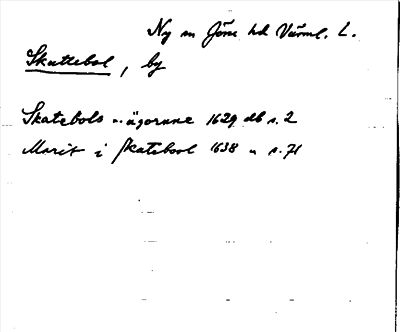 Ny sn Jösse hd Värml. L.
Skattebol, by
Skatebols .. ägorne 1629 db s. 2
Marit i Skatebool 1638 " s. 71